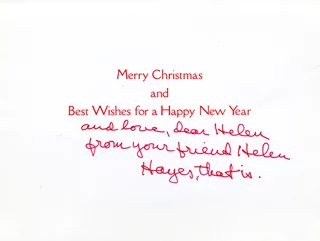 Merry Christmas
and
Best Wishes for a Happy New Year
and love, dear Helen
from your friend Helen
Hayes, that is.